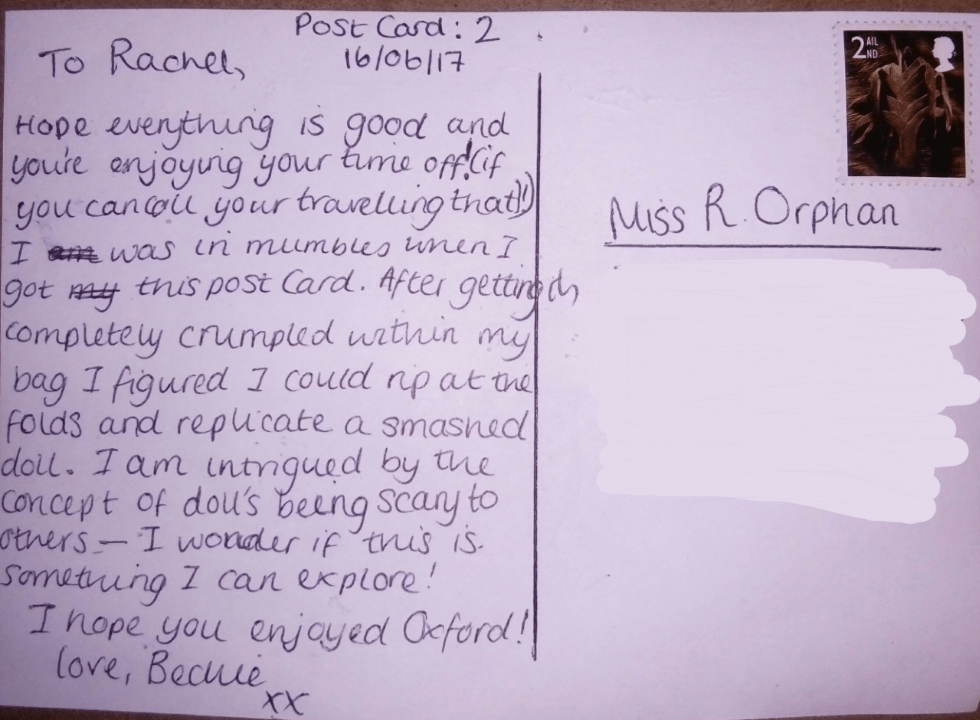 Post Card: 2
16/06/17
To Rachel,
Hope everything is good and
you're enjoying your time off! (if
you can call your travelling that!!)
I am was in mumbles when I
got my this post Card. After getting it
completely crumpled within my
bag I figured I could rip at the
folds and replicate a smashed
doll. I am intrigued by the
concept of doll's being scary to
others – I wonder if this is
something I can explore!
I hope you enjoyed Oxford!
love, Beckie
xx
2ND
Miss R. Orphan